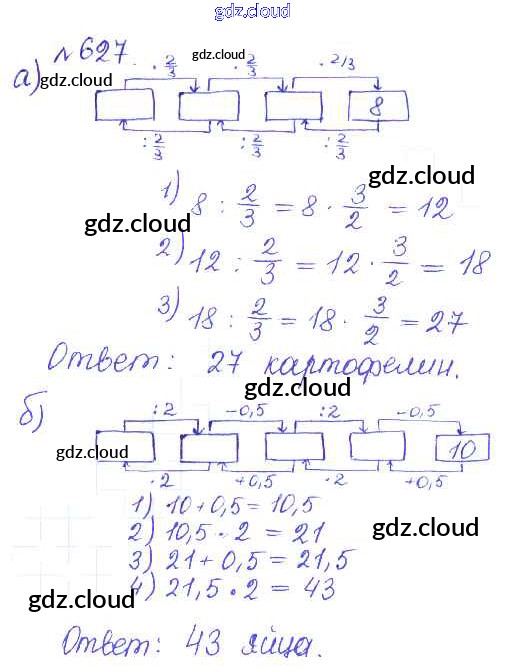 gdz.cloud
№ 627
gdz.cloud
а) gdz.cloud · 2/3 · 2/3 · 2/3
8
: 2/3 : 2/3 : 2/3
gdz.cloud
1) 8 : 2/3 = 8 · 3/2 = 12
gdz.cloud
2) 12 : 2/3 = 12 · 3/2 = 18
3) 18 : 2/3 = 18 · 3/2 = 27
gdz.cloud
Ответ: 27 картофелин.
gdz.cloud
б) :2 -0,5 :2 -0,5
10
gdz.cloud
·2 +0,5 ·2 +0,5
1) 10 + 0,5 = 10,5
2) 10,5 · 2 = 21
gdz.cloud
3) 21 + 0,5 = 21,5
4) 21,5 · 2 = 43
gdz.cloud
gdz.cloud
Ответ: 43 яйца.